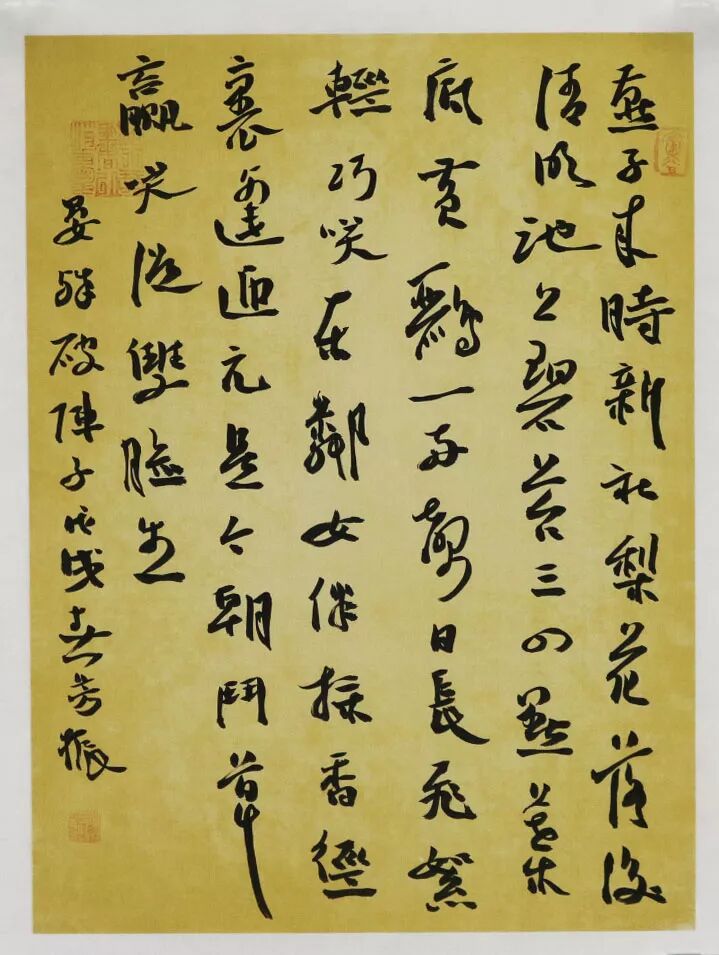 燕子来時新社梨花落後
清明池上碧苔三四點葉
底黄鸝一兩聲日長飛絮
輕巧笑東鄰女伴採香徑
裏逢迎元是今朝鬥草
贏笑從雙臉生
晏殊破陣子戌芳振